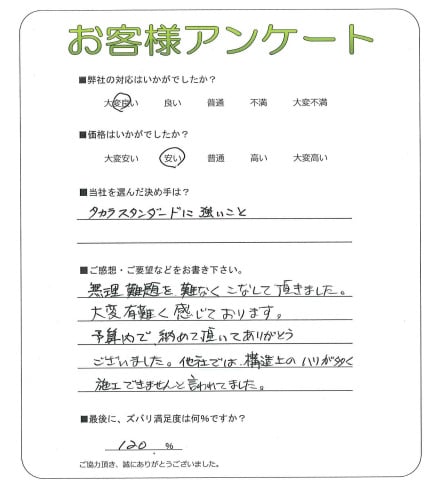 お客様アンケート
■弊社の対応はいかがでしたか？
大変良い 良い 普通 不満 大変不満
■価格はいかがでしたか？
大変安い 安い 普通 高い 大変高い
■当社を選んだ決め手は？
タカラスタンダードに強いこと
■ご感想・ご要望などをお書き下さい。
無理難題を難なくこなして頂きました。
大変有難く感じております。
予算内で納めて頂いてありがとう
ございました。他社では、構造上のハリが多く
施工できませんと言われてました。
■最後に、ズバリ満足度は何%ですか？
120.%
ご協力頂き、誠にありがとうございました。